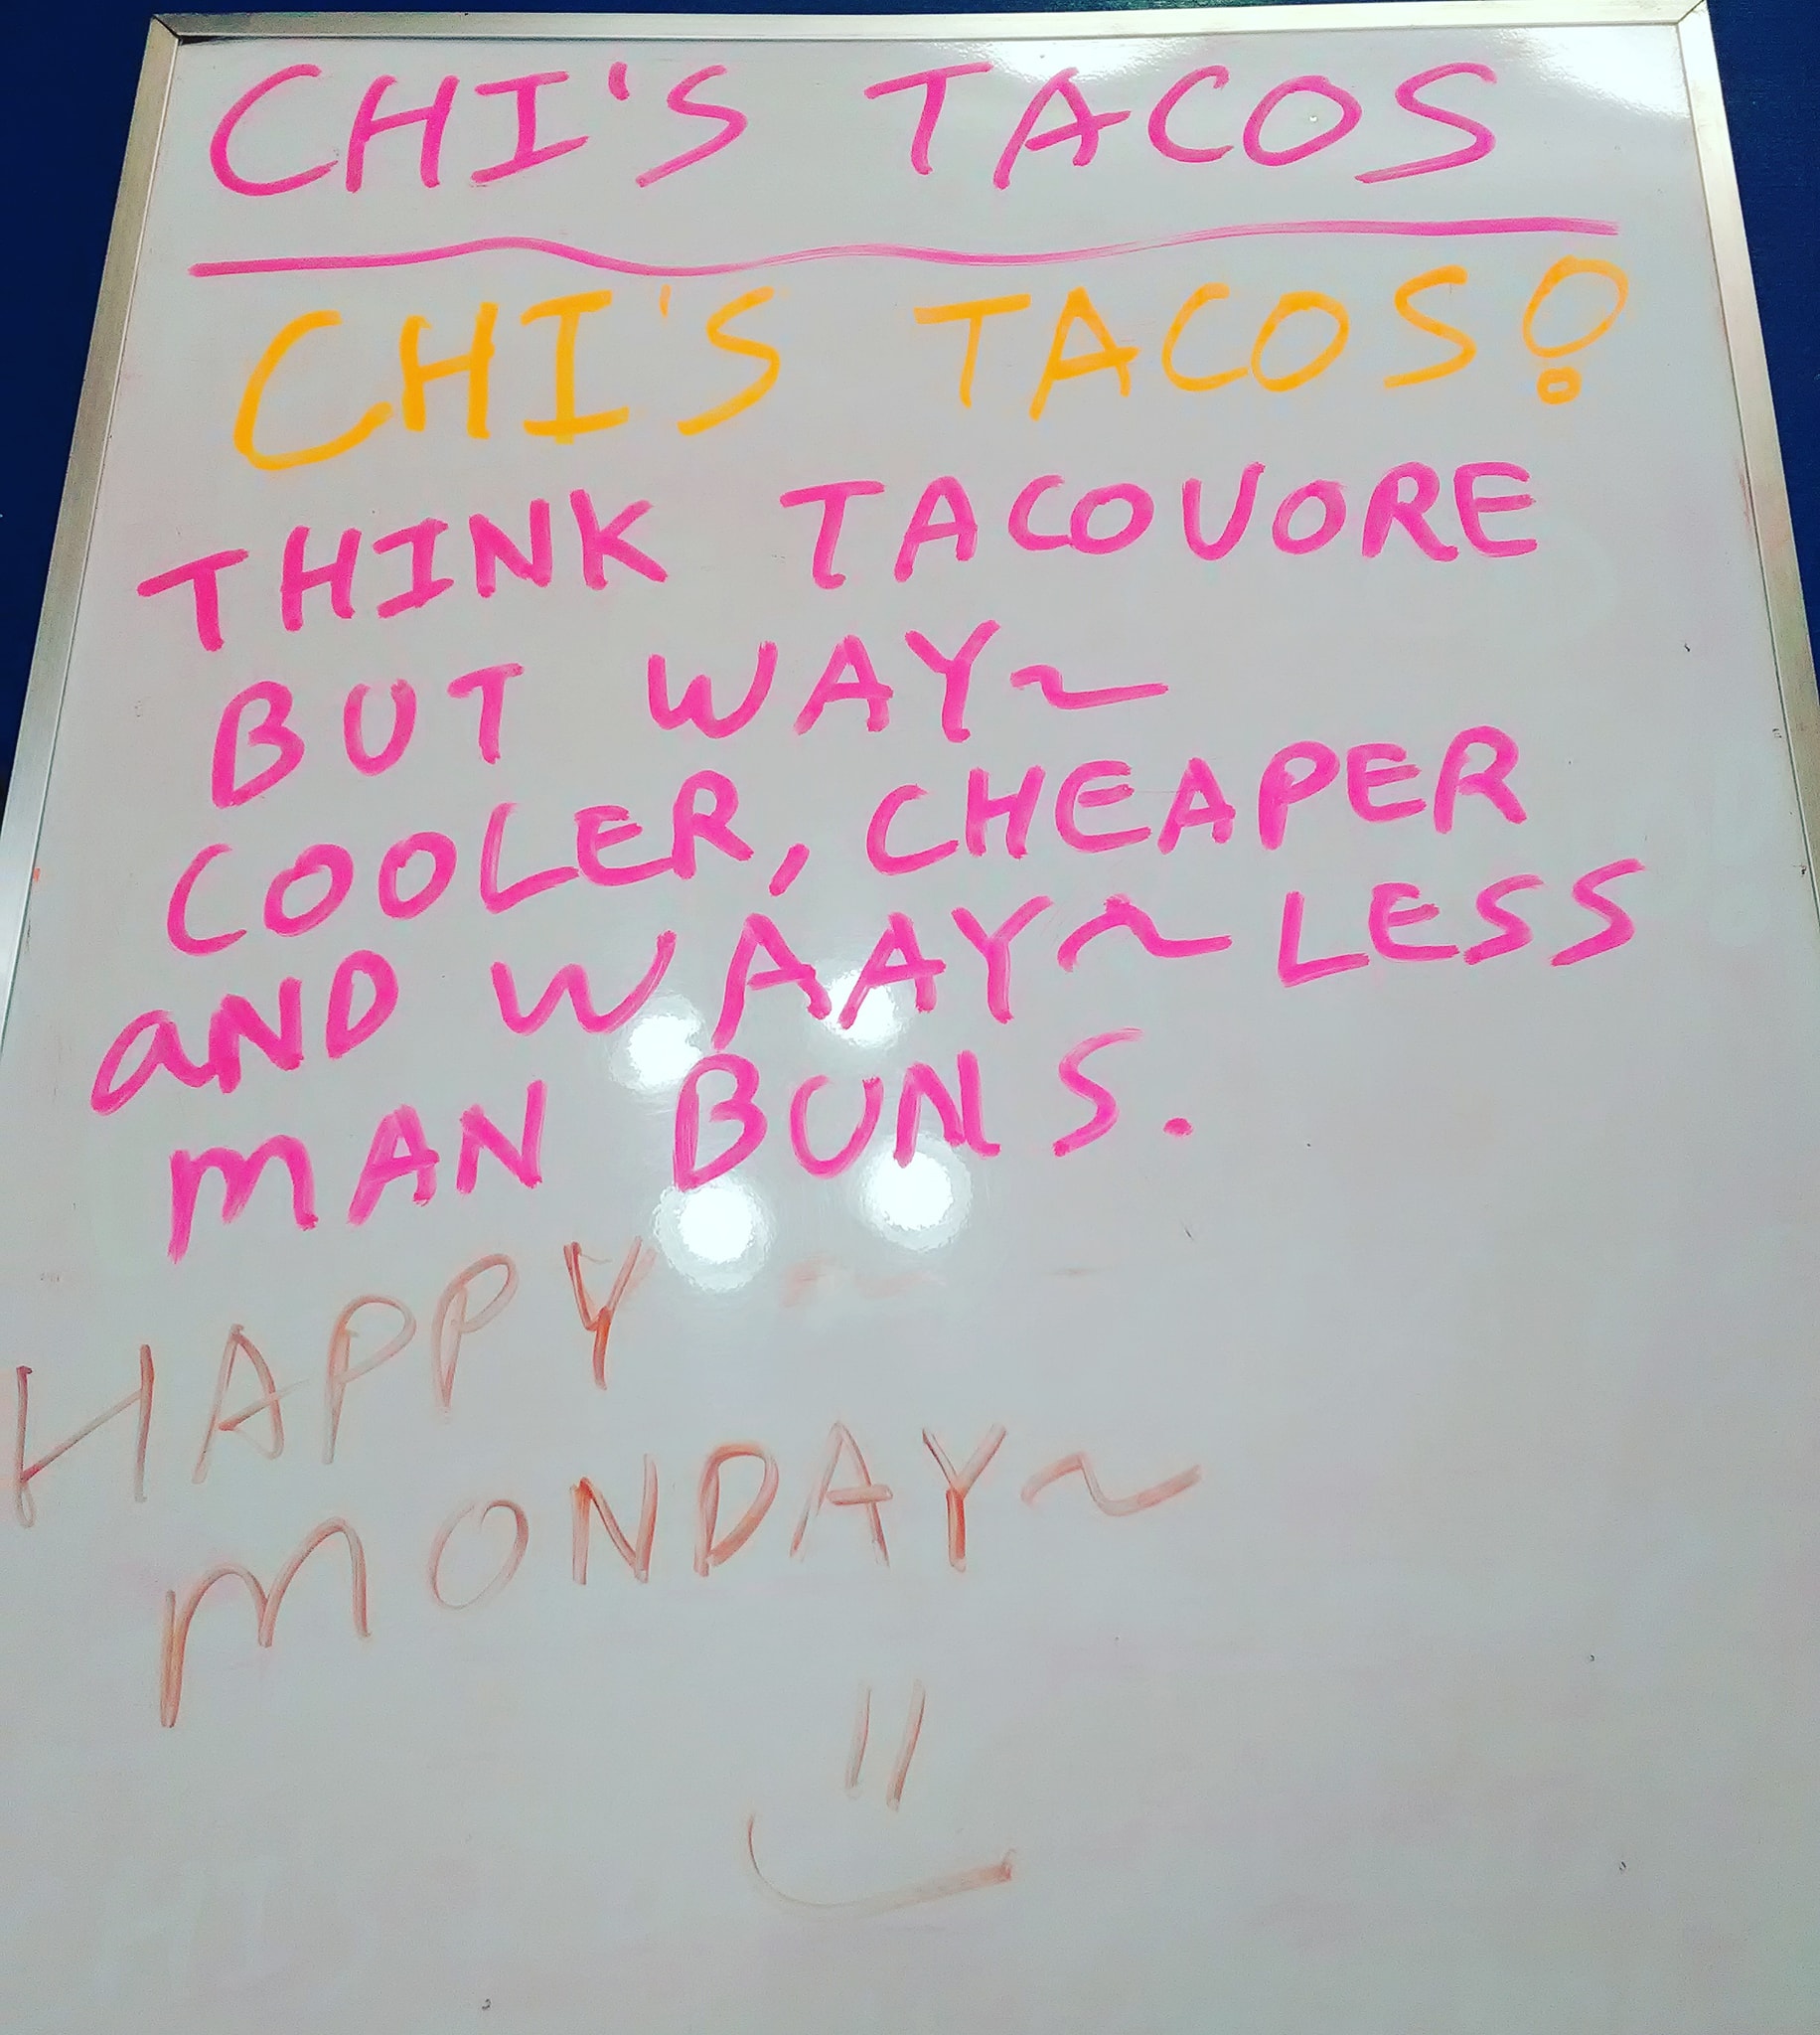 CHI'S TACOS
CHI'S TACOS!
THINK TACOVORE
BUT WAY~
COOLER, CHEAPER
AND WAAY~ LESS
MAN BUNS.
HAPPY
MONDAY~